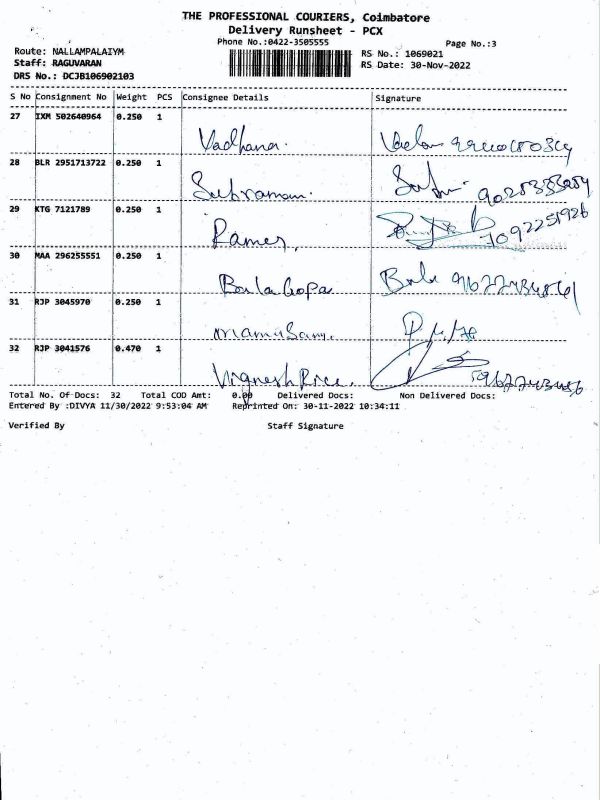 THE PROFESSIONAL COURIERS, Coimbatore
Delivery Runsheet - PCX
Phone No.:0422-3505555
Page No.:3
Route: NALLAMPALAIYM
RS No.: 1069021
Staff: RAGUVARAN
RS Date: 30-Nov-2022
DRS No.: DCJB106902103
S No Consignment No Weight PCS Consignee Details Signature
27 IXM 502640964 0.250 1
Vadhana.
28 BLR 2951713722 0.250 1
Subraman. 9025333054
29 KTG 7121789 0.250 1
Ramer, 7092251926
30 MAA 296255551 0.250 1
BalaGopa Bala
31 RJP 3045970 0.250 1
32 RJP 3041576 0.470 1
Total No. Of Docs: 32 Total COD Amt: 0.00 Delivered Docs: Non Delivered Docs:
Entered By :DIVYA 11/30/2022 9:53:04 AM Reprinted On: 30-11-2022 10:34:11
Verified By Staff Signature